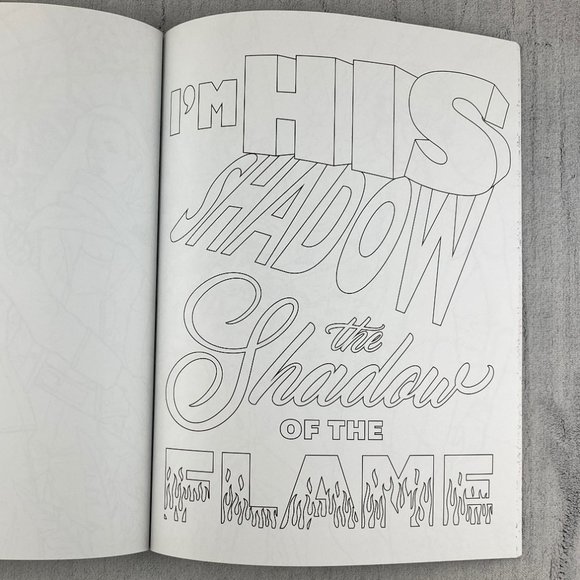 I'M HIS
SHADOW
the
Shadow
OF THE
FLAME